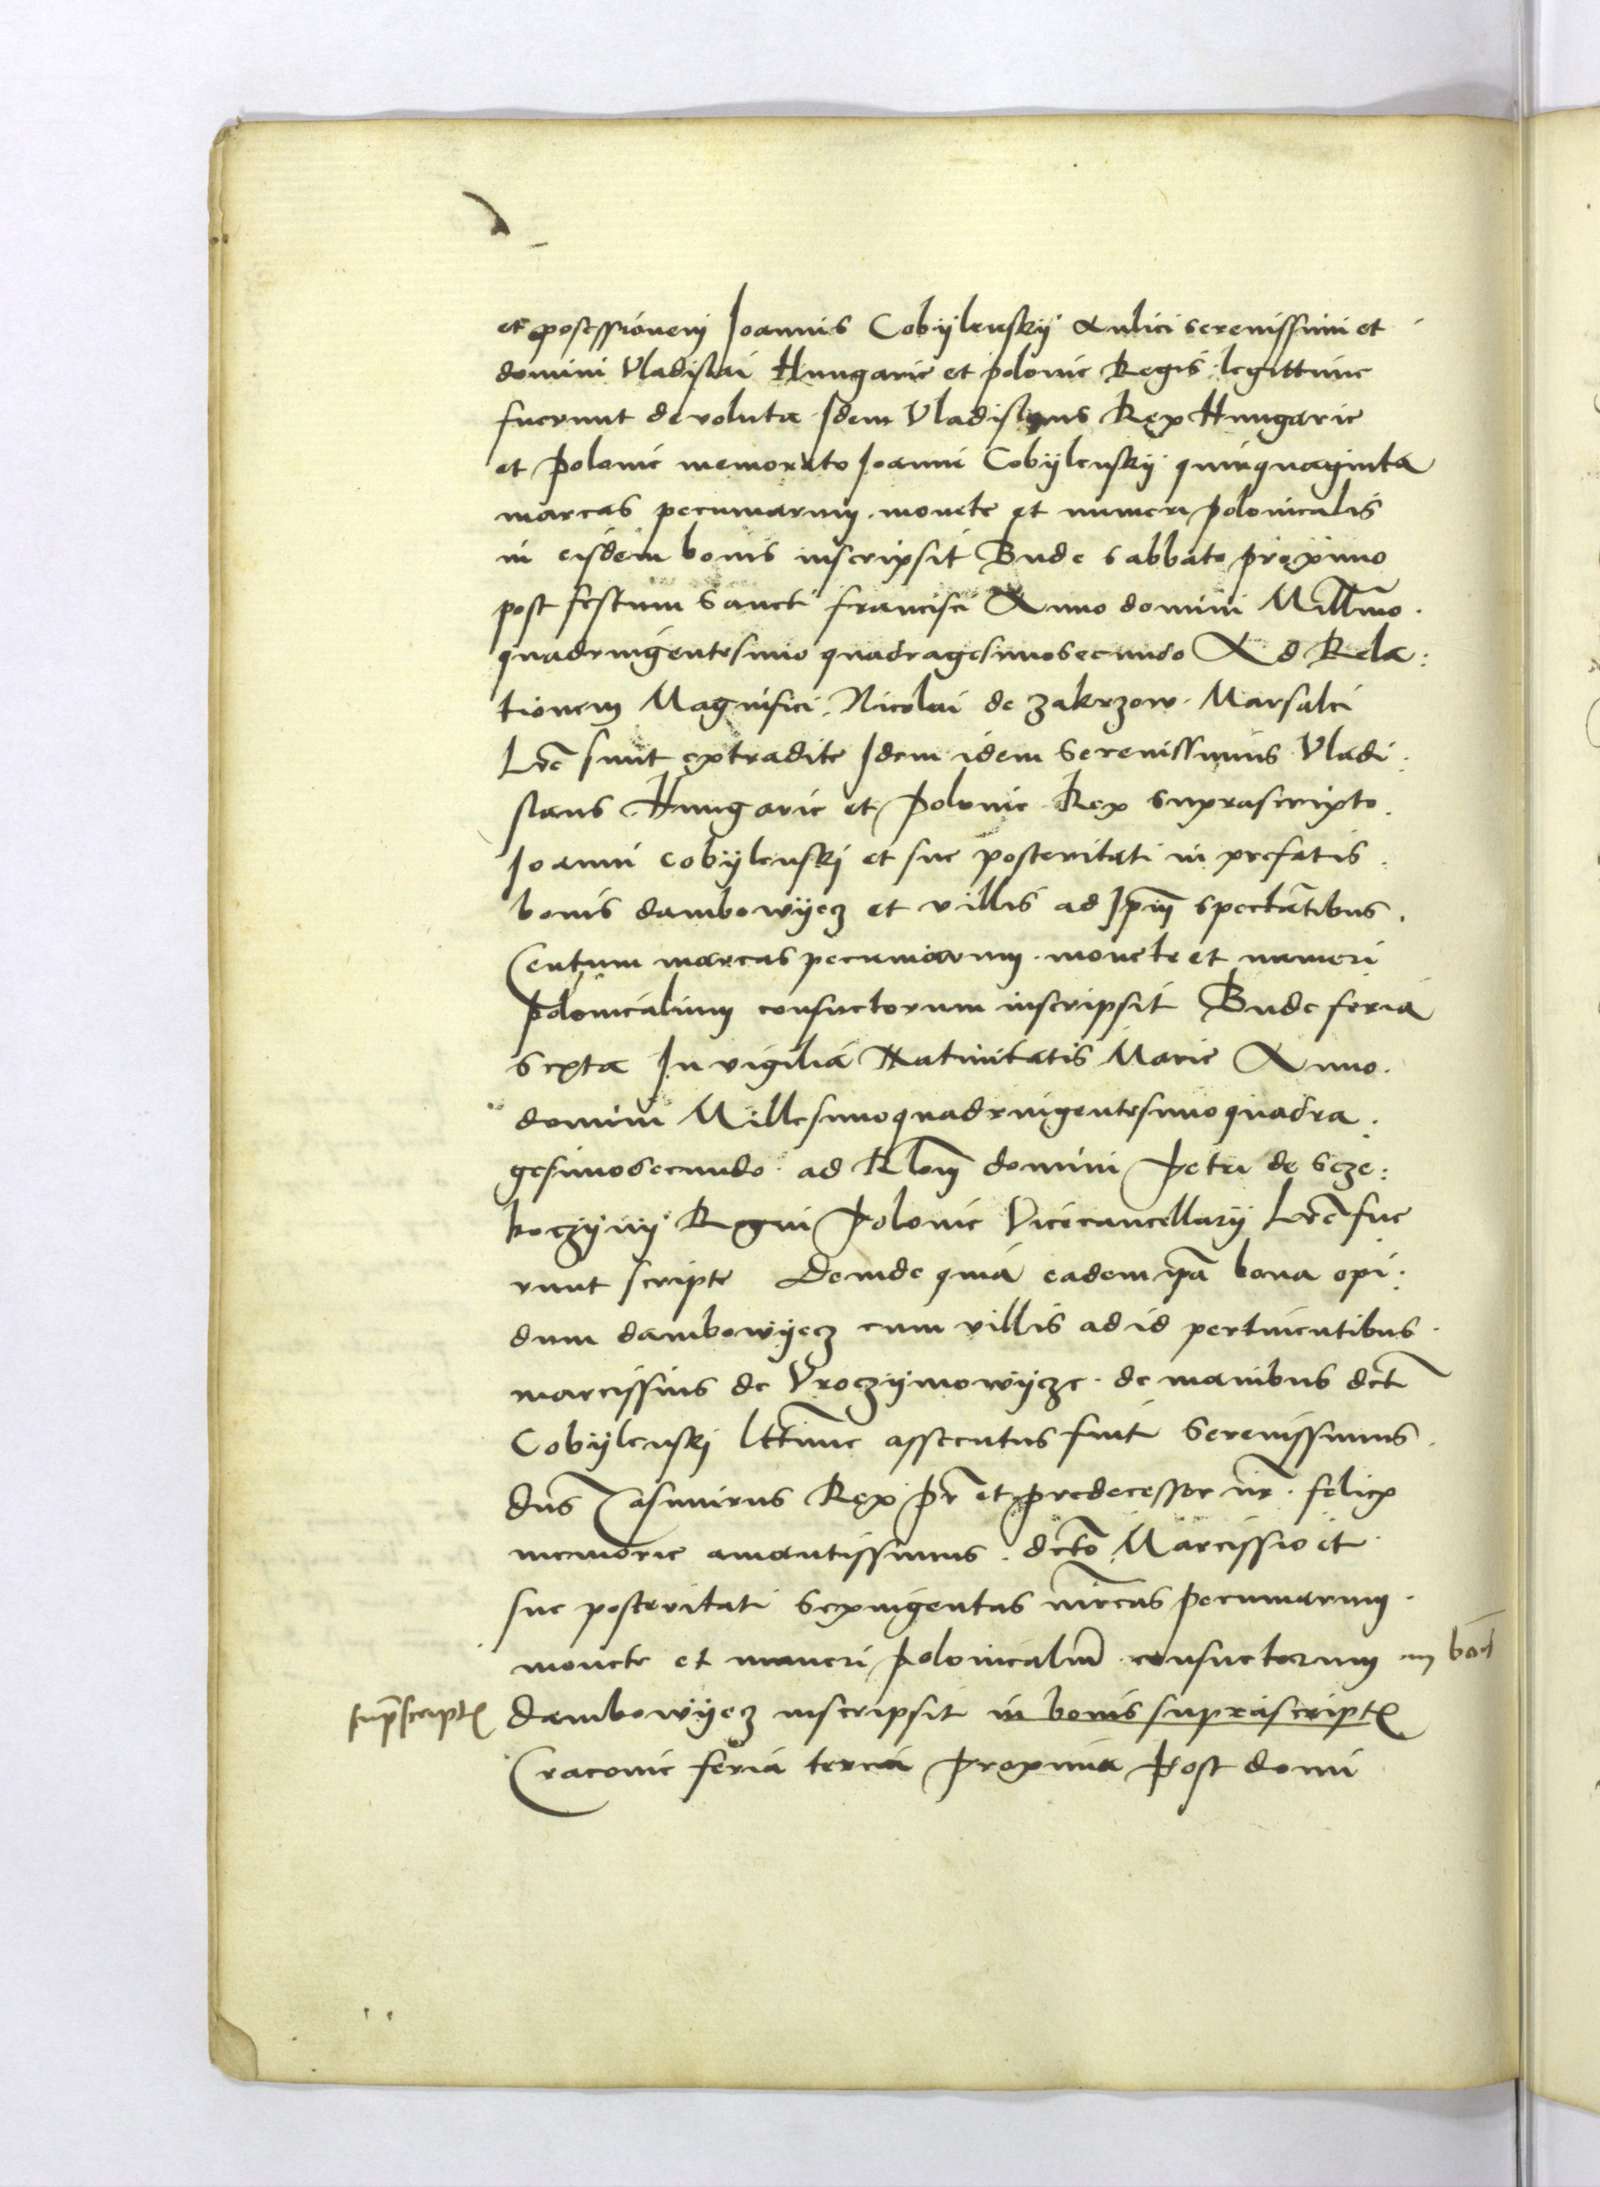 et possessionem Joannis Cobÿlenskÿ Aulici serenissimi et
domini Vladislai Hungarie et polonie Regis legittime
fuerunt devoluta Idem Vladislaus Rex Hungarie
et Polonie memorato Joanni Cobÿlenskÿ quinquaginta
marcas pecuniarum monete et numeri polonicalis
in eisdem bonis inscripsit Bude sabbato proximo
post festum Sancti francisci Anno domini Millmo.
quadringentesimo quadragesimosecundo Ad Rela:
tionem Magnifici Nicolai de Zakrzow Marsalci
Lre sunt extradite Idem idem Serenissimus Vladi:
slaus Hungarie et Polonie Rex suprascripto.
Joanni Cobÿlenskj et sue posteritati in prefatis.
bonis dambowÿecz et villis ad Ipm spectatibus.
Centum marcas pecuniarum monete et numeri
Polonicalium consuetorum inscripsit Bude feria
sexta In vigilia Nativitatis Marie Anno.
domini Millesimoquadringentesimoquadra.
gesimosecundo ad Rlom domini Petri de Scze:
koczÿnÿ Regni Polonie Vicecancellarÿ Lre fue
runt scripte Deinde quia eadem ipa bona opi:
dum dambowÿecz cum villis ad id pertinentibus.
marcissius de Vroczÿmowÿcze de manibus dct
Cobÿlenskj lttime assecutus fuit Serenissimus.
dns Casimirus Rex pr et predecessor nr felicx
memorie amantissimus. dcto Marcissio et
sue posteritati sexingentas mrcas pecuniarum.
monete et numeri Polonicaliu consuetorum in bo
suprscript dambowÿecz inscripsit in bonis suprascript
Cracovie feria tercia Proxima Post domi